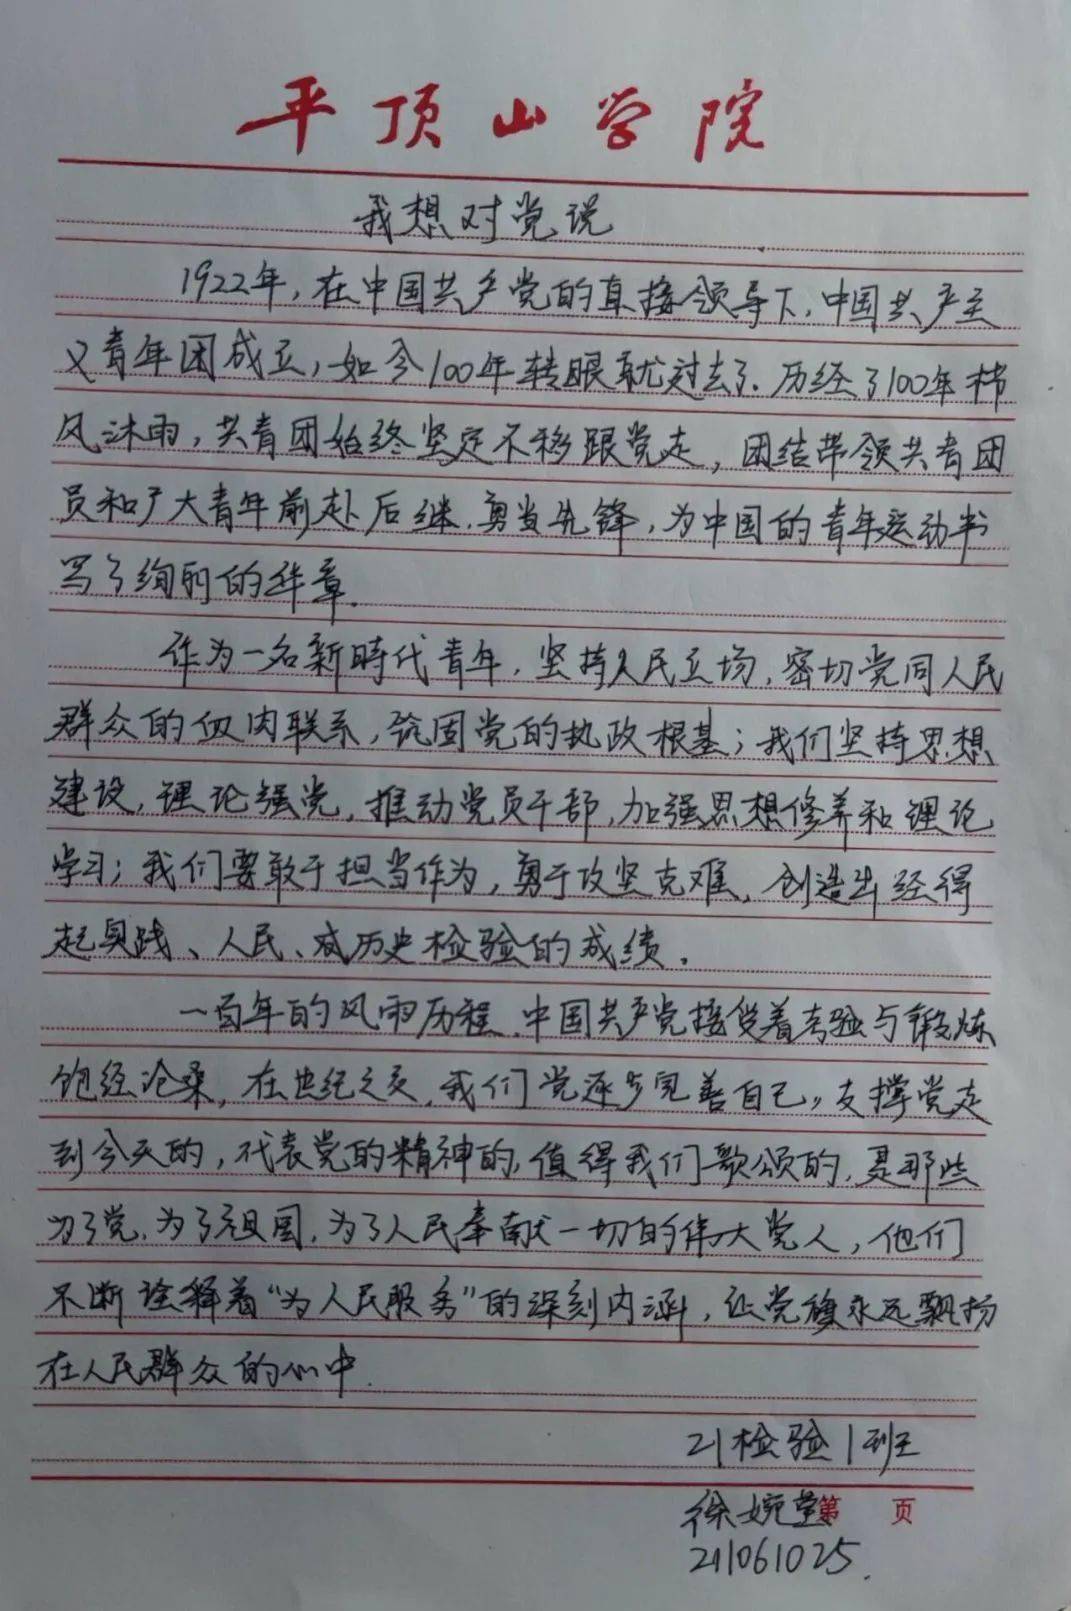 平顶山学院
我想对党说
1922年，在中国共产党的直接领导下，中国共产主
义青年团成立，如今100年转眼就过去了．历经了100年栉
风沐雨，共青团始终坚定不移跟党走，团结带领共青团
员和广大青年前赴后继．勇当先锋，为中国的青年运动书
写了绚丽的华章．
作为一名新時代青年，坚持人民立场，密切党同人民
群众的血肉联系，巩固党的执政根基；我们坚持思想
建设，理论强党，推动党员干部，加强思想修养和理论
学习；我们要敢于担当作为，勇于攻坚克难，创造出经得
起实践、人民、历史检验的成绩．
一百年的风雨历程．中国共产党接受着考验与锻炼
饱经沧桑，在世纪之交，我们党逐步完善自己，支撑党走
到今天的，代表党的精神的，值得我们歌颂的，是那些
为了党，为了祖国，为了人民奉献一切的伟大党人，他们
不断诠释着“为人民服务”的深刻内涵，让党旗永远飘扬
在人民群众的心中．
21检验1班
徐婉莹
第 页
211061025.